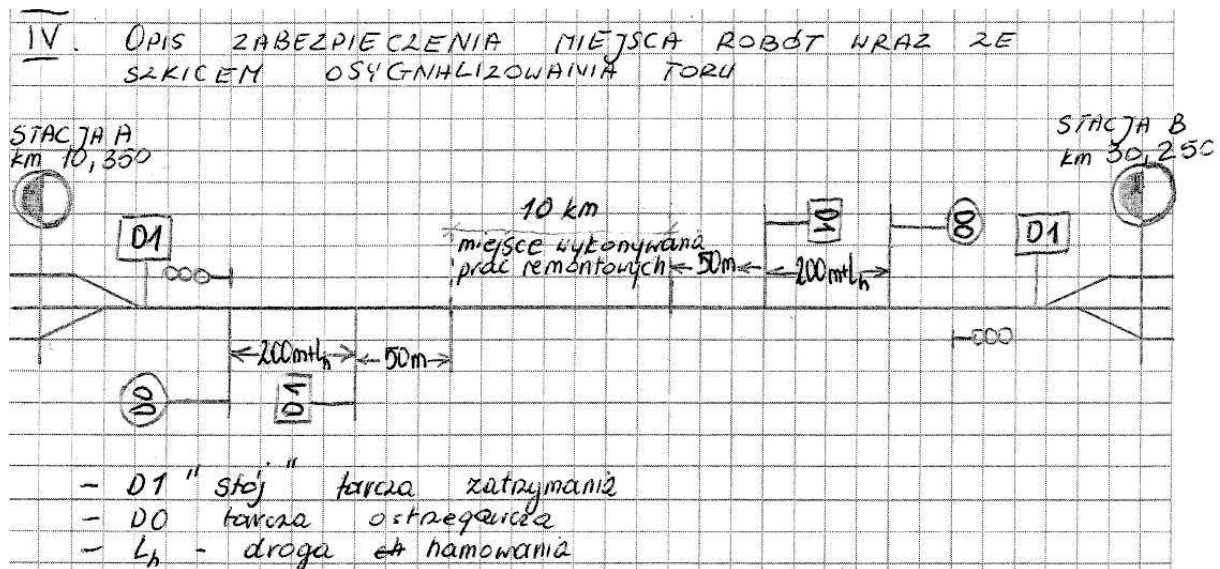 IV. OPIS ZABEZPIECZENIA MIEJSCA ROBÓT WRAZ ZE
SZKICEM OSYGNALIZOWANIA TORU
STACJA A
km 10,350
STACJA B
km 30,250
D1
10 km
miejsce wykonywana
prac remontowych
50m
D1
200m+Lh
D0
D1
200m+Lh
50m
D0
D1
- D1 "stój" tarcza zatrzymania
- D0 tarcza ostrzegawcza
- Lh - droga hamowania